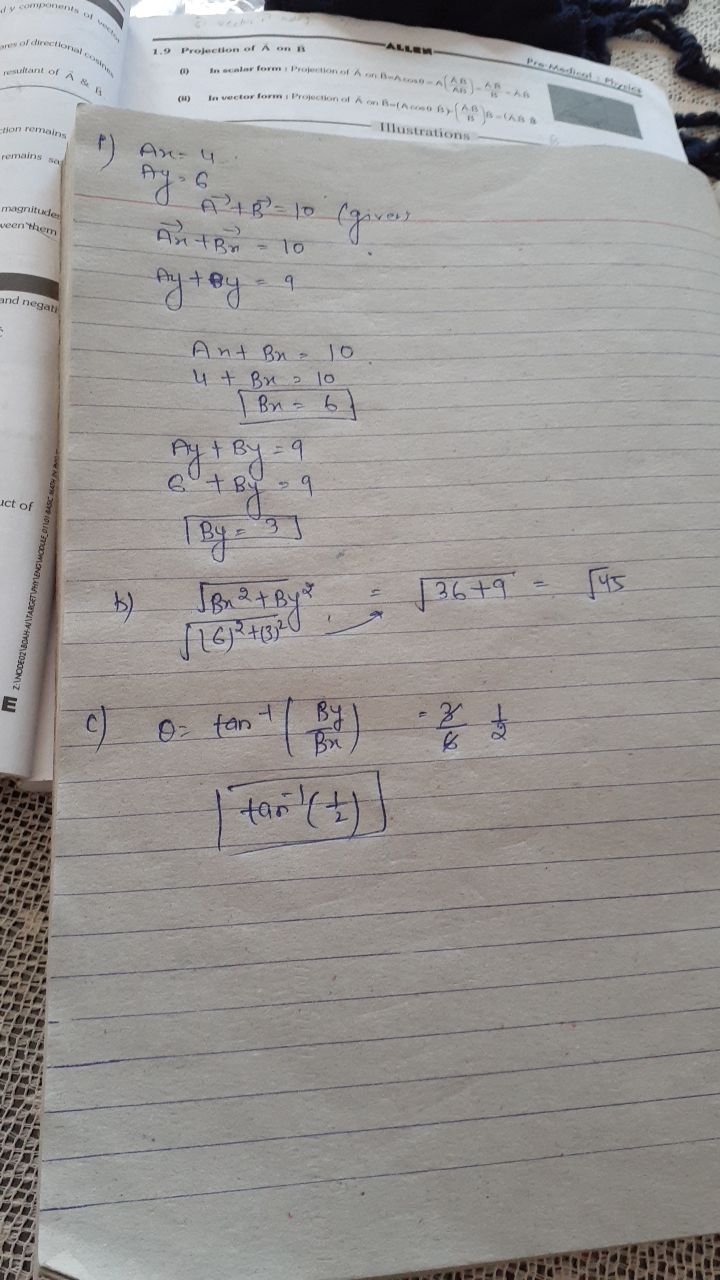 d y components of vector
ares of directional cosines
resultant of A & B
ction remains
remains sa
magnitudes
ween them
and negati
uct of
E
1.9 Projection of A on B
ALLEN
Pre-Medical : Physics
(i) In scalar form : Projection of A on B
(ii) In vector form : Projection of A on B
Illustrations
Ax = 4
Ay = 6
A⃗ + B⃗ = 10 (given)
A⃗x + B⃗x = 10
Ay + By = 9
Ax + Bx = 10
4 + Bx = 10
Bx = 6
Ay + By = 9
6 + By = 9
By = 3
b) √Bx² + By² = √36+9 = √45
√(6)² + (3)²
c) θ = tan⁻¹ (By/Bx) = 3/6 1/2
tan⁻¹ (1/2)